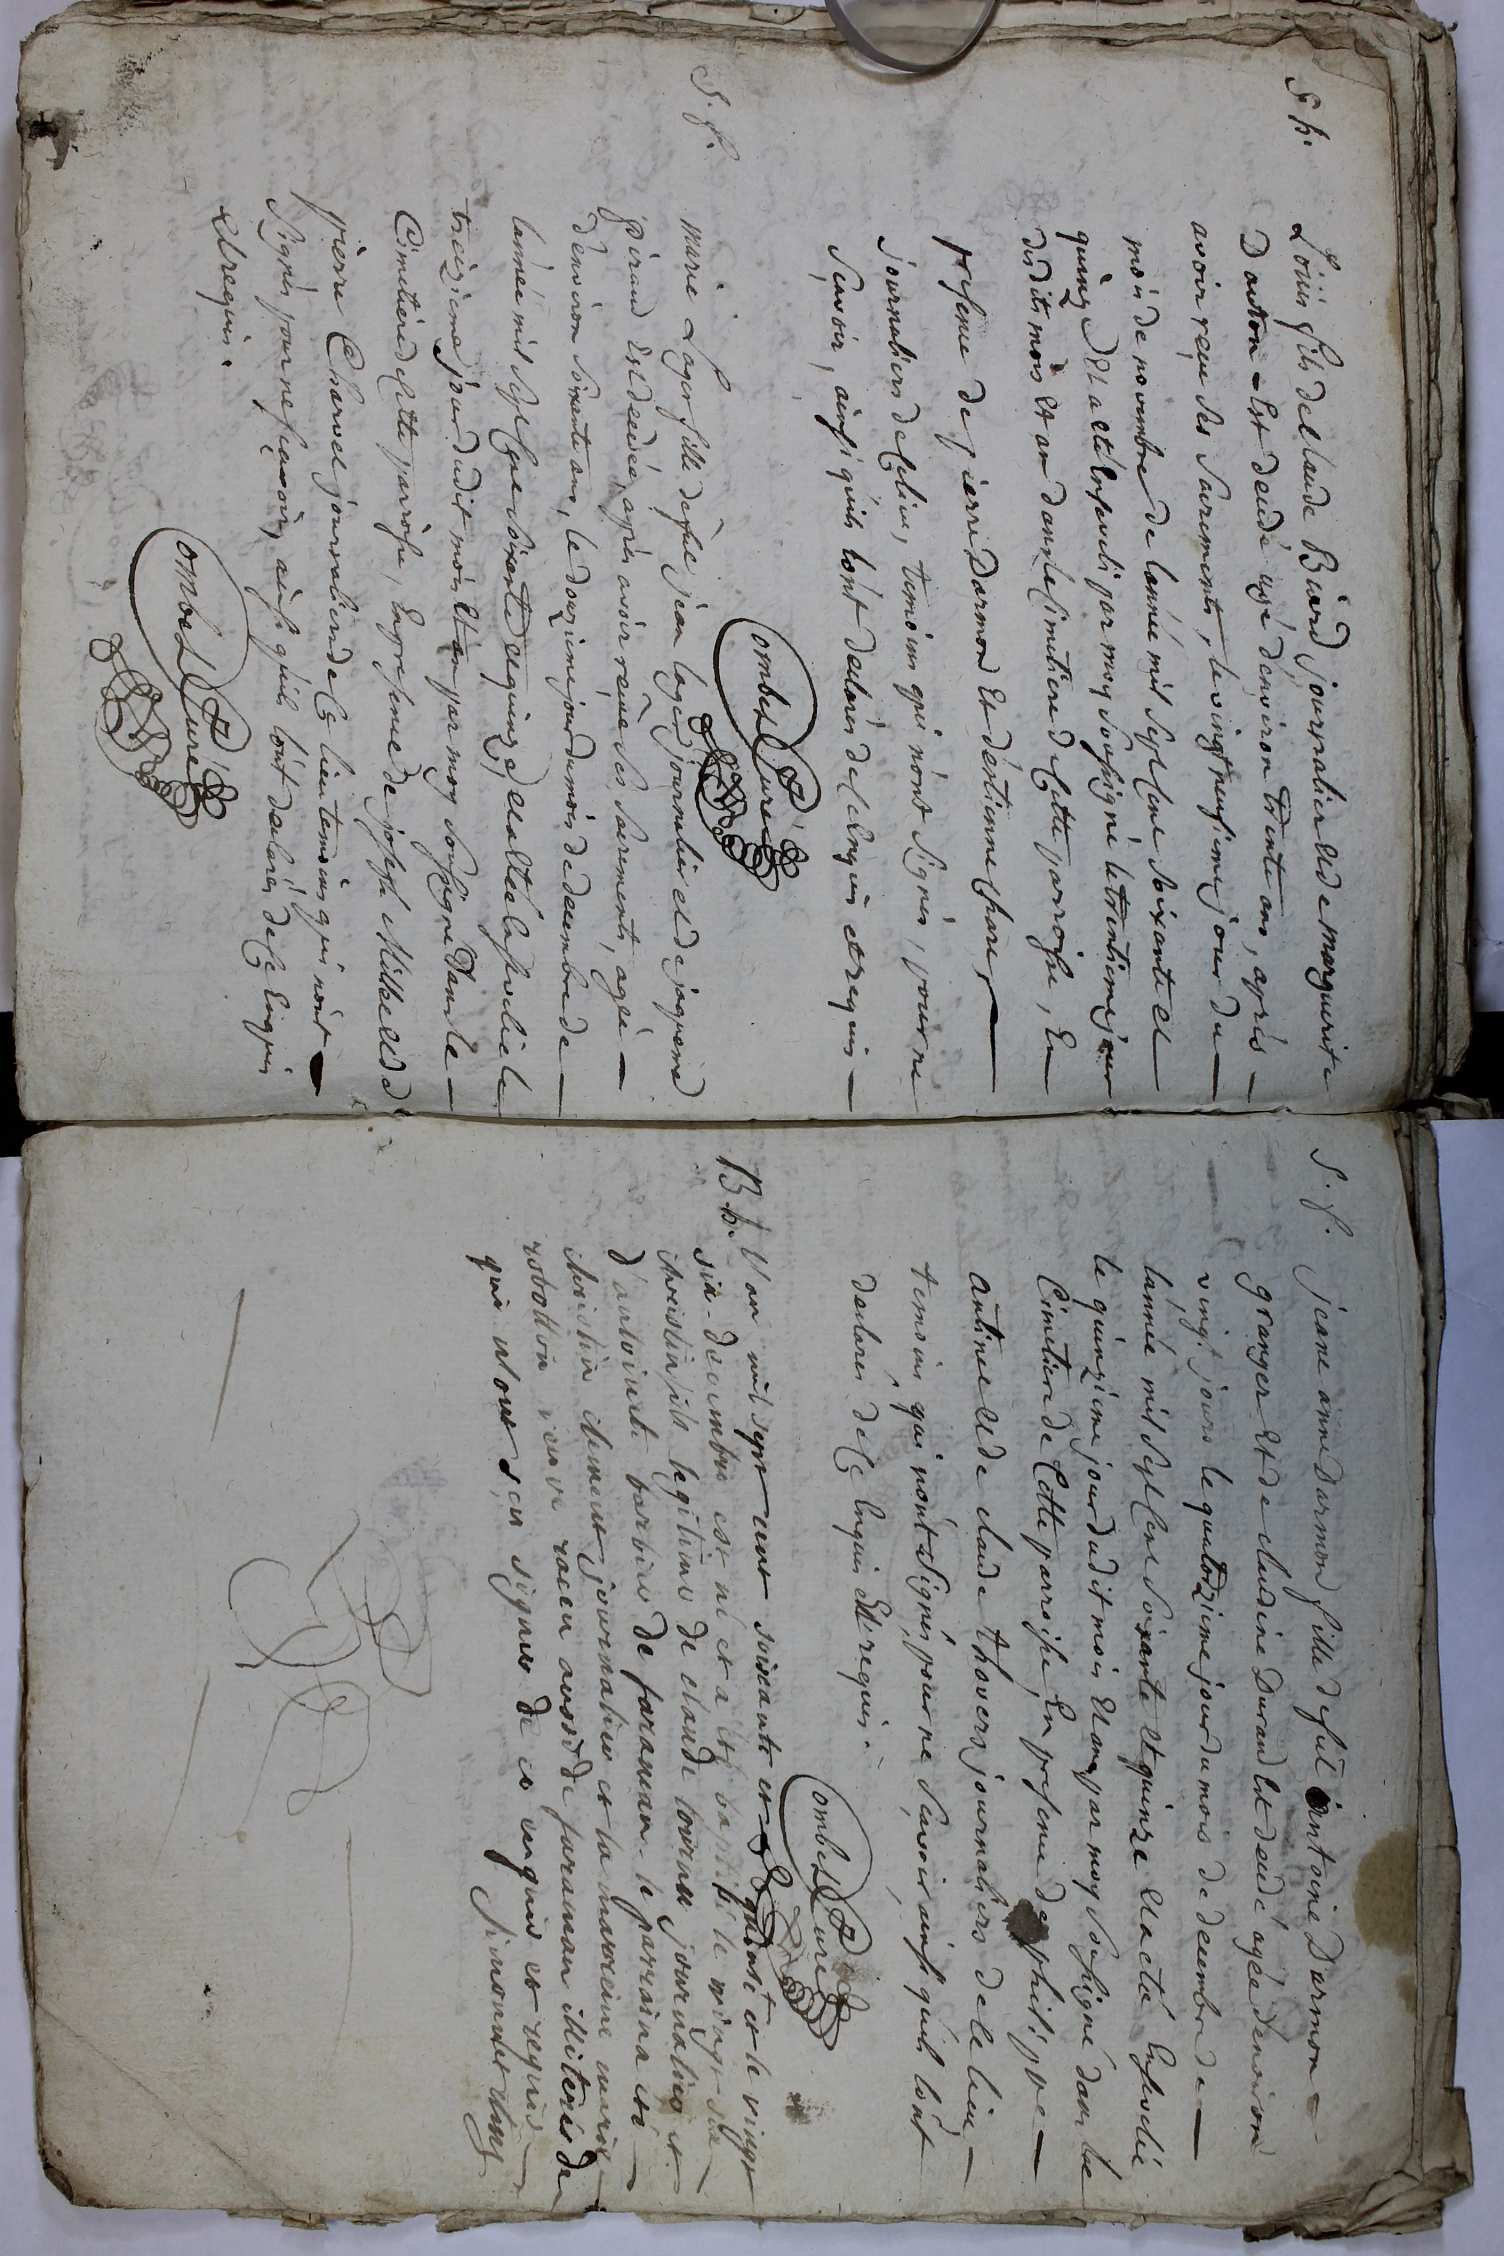 S. h.
Loüis fils de Claude Buard journalier et de marguerite
Danton Est decedé agé d'environ trente ans, aprés
avoir reçue ses Sacrements, le vingt neufieme jour du
mois de novembre de lannée mil Sept Cent Soixante et
quinze Et a eté Enseveli par moy Soussigné le trentieme jour
dudit mois et an dans le Cimetiere de Cette parroisse, En
presence de pierre Darmon Et d'Estienne
journaliers de Ce lieu, temoins qui n'ont Signés, pour ne
Scavoir, ainsi qu'ils l'ont declarés de Ce Enquis et requis
Combet Curé
S. f.
marie Loger fille de feu jean loger journalier et de jaqueme
giraud Est decedée, aprés avoir reçue Ses Sacrements, agée
d'environ Soixante ans, le douzieme jour du mois de decembre de
lannée mil Sept Cent Soixante et quinze et a eté Ensevelie le
treizieme jour dudit mois et an par moy Soussigné Dans le
Cimetiere de Cette parroisse, En presence de joseph Millet et de
pierre Charvet journaliers de Ce lieu temoins qui n'ont
Signés pour ne Scavoir, ainsi qu'ils l'ont declarés de Ce Enquis
et requis.
Combet Curé
S. f.
jeane anne Darmon fille de feu antoine Darmon
granger Et de claudine Durand Est decedé agée d'environ
vingt jours le quatorzieme jour du mois de decembre de
lannée mil Sept Cent Soixante et quinze Et a eté Ensevelie
le quinzieme jour dudit mois Et an par moy Soussigné dans le
Cimetiere de Cette paroisse, En presence de philipe
antinel et de claude thovers journaliers de Ce lieu,
temoins qui n'ont Signés, pour ne Scavoir ainsi qu'ils l'ont
declarés de Ce Enquis Et requis.
Combet Curé
B. h.
L'an mil sept cent soixante et quinze et le vingt
six decembre est né et a eté baptisé le vingt six
christin fils legitime de claude journalier et
d'antoinete barbier de faraman le parrain a eté
christin journalier et la marraine marie
robatton veuve aussi de faraman illiterés de
qui n'ont scu signer de ce enquis et requis